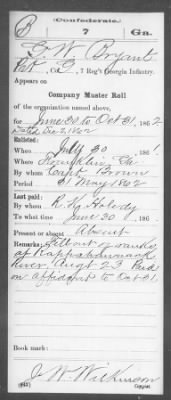 (Confederate.)
B 7 Ga.
G. W. Bryant
Pvt, Co. E, 7 Reg't Georgia Infantry.
Appears on
Company Muster Roll
of the organization named above,
for June 30 to Oct 31, 1862
Dated Dec 2, 1862
Enlisted:
When July 30, 1861
Where Franklin, Ga
By whom Capt Brown
Period 31 May 1862
Last paid:
By whom R. K. Holiday
To what time June 30, 186
Present or absent Absent
Remarks: Fell out of ranks
at Rappahannock
River Augt 23 Paid
on affidavit to Oct 31
Book mark:
J W Wilkinson
(642) Copyist.